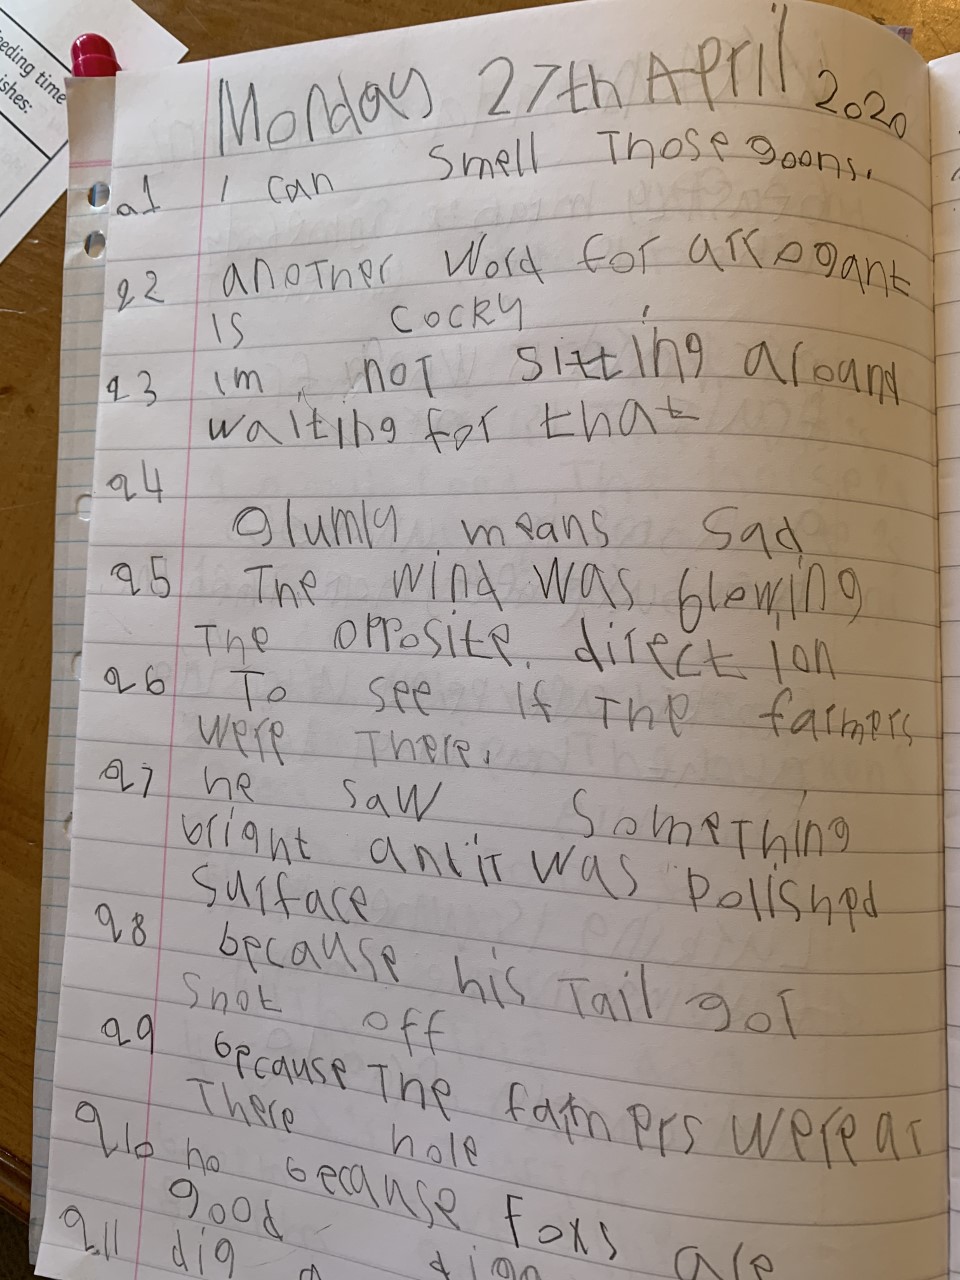 eeding time
ishes:
Monday 27th April 2020
q1 I can smell Those goons.
q2 another Word for arrogant
is cocky
q3 im not sitting around
waiting for that
q4
glumly means sad
q5 The wind was blowing
The opposite. direct ion
q6 To see if The farmers
were There.
q7 he saw something
bright it was polished
surface
q8 because his Tail got
shot off
q9 because The were at
There hole
q10 no because foxs are
good
q11 dig